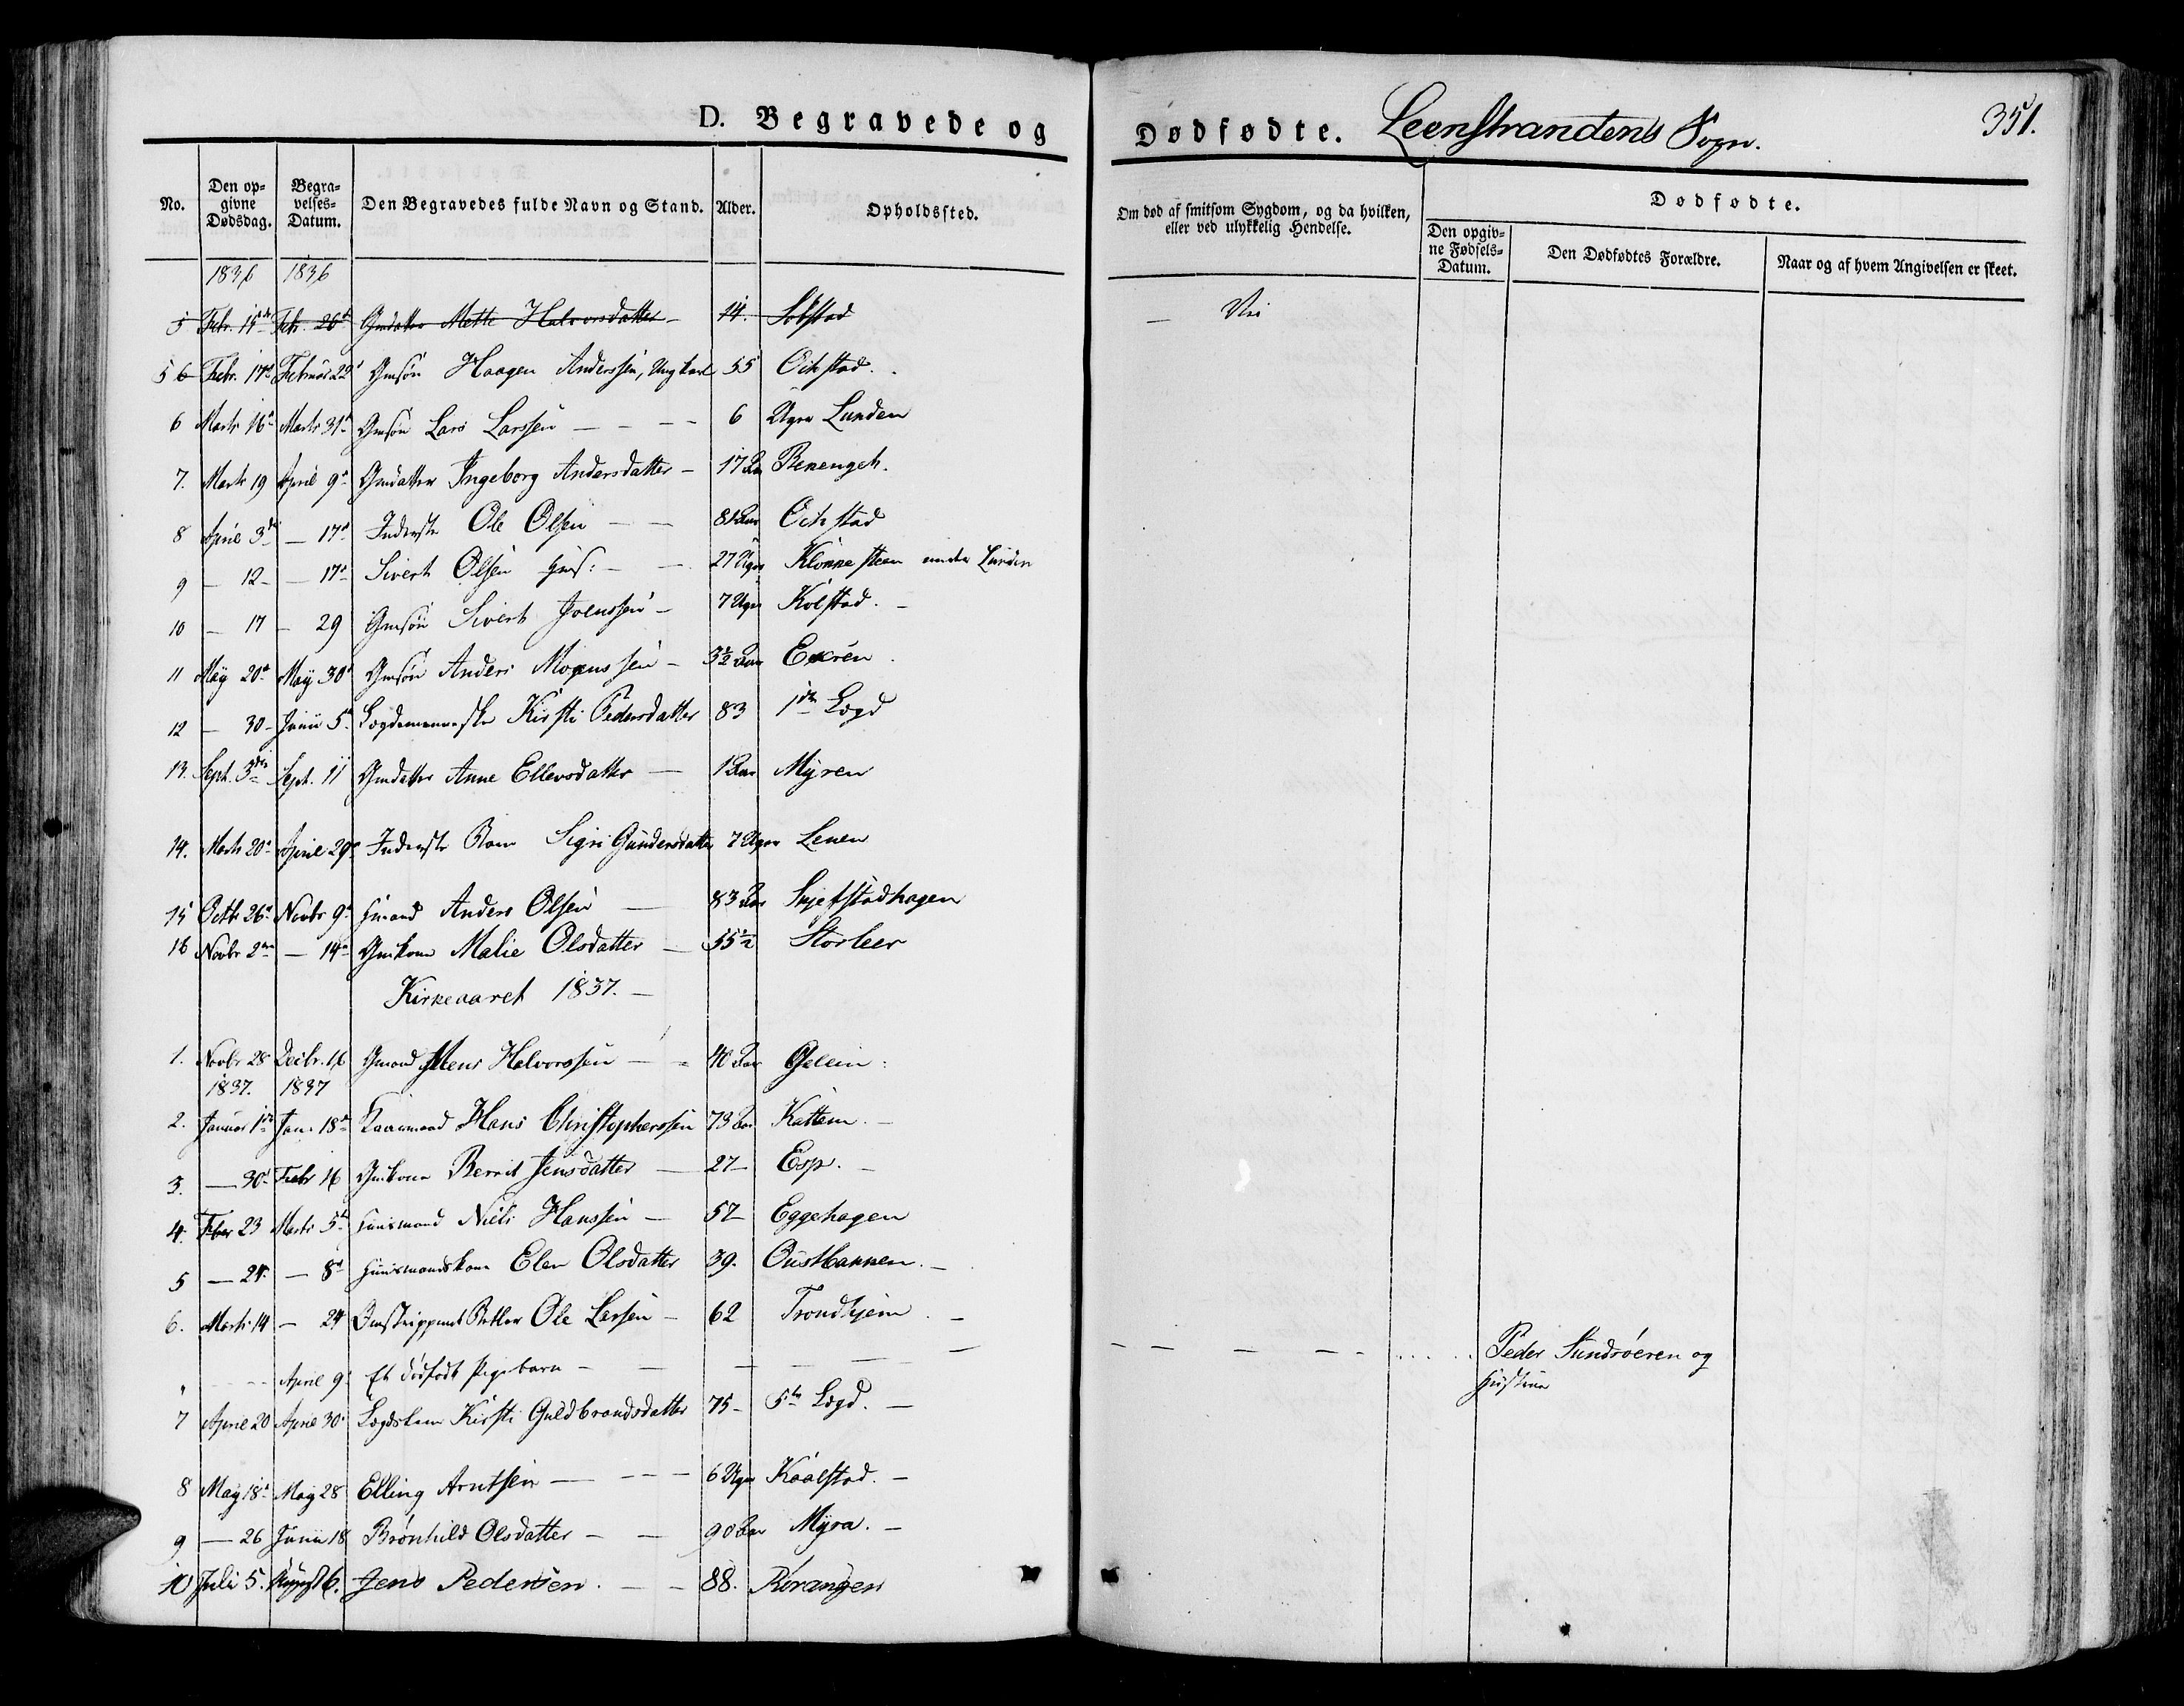 D. Begravede og Dødfødte. Leenstrandens Sogn. 351.
No. Den opgivne Dødsdag. Begravelses-Datum. Den Begravedes fulde Navn og Stand. Alder. Opholdssted. Om død af smitsom Sygdom, og da hvilken, eller ved ulykkelig Hendelse. Dødfødte.
Den opgivne Fødsels-Datum. Den Dødfødtes Forældre. Naar og af hvem Angivelsen er skeet.
1836 1836
5 Febr. 15de Febr. 26d Gmdatter Mette Halvorsdatter - 14.
5 6 Febr. 17d Februar 22d Gmsøn Haagen Anderssen, Ungkarl 55 Oihstad.
6 Marts 16d Marts 31d Gmsøn Lars Larssen - - - 6 Uger Lunden
7. Marts 19 April 9d Gmdatter Ingeborg Andersdatter - 17 Aar
8 April 3de - 17d Inderst Ole Olsen - - 81 Aar Oihstad
9 - 12 - - 17d Sivert Olsen - - 27 Uger Klønnesteen under Lunden
10 - 17 - 29 Gmsøn Sivert Joenssen - 7 Uger Kolstad. -
11 May 20d May 30d Gmsøn Anders Monssen - 3½ Aar
12 - 30 - Junii 5d Lægdemenneske Kirsti Pedersdatter 83 1ste Lægd
13. Sept. 3die Sept. 11 Gmdatter Anne Ellevsdatter - 1 Aar Myren
14. Marts 20d April 29d Inderst Barn Sigri Gundersdatter 7 Uger Lenen
15 Octbr 26d Novbr 9d Hmand Anders Olsen - 83 Aar Skjefstadhagen
16 Novbr 2den - 14de Gmkone Malie Olsdatter - 55½ Storleer
Kirkeaaret 1837. -
1. Novbr 28 Decbr. 16 Gmand Mens Halvorssen - - 40 Aar
1837. 1837
2. Januar 1ste Jan. 18de Kaarmand Hans Christopherssen 73 Aar Kattem. -
3. - 30d Febr 16 Gmkone Berrit Jensdatter - 27 - Esp. -
4. Febr 23 Marts 5d Huusmand Niels Hanssen - 57 - Eggehagen
5 - 24. - 8d Huusmandskone Elen Olsdatter 39. Oustbakken. -
6. Marts 14 - 24 Omstrippende Betler Ole Larsen - 62 Trondhjem. -
" - - - April 9 Et dødfødt Pigebarn - - - - - - - - - - - - Peder Sundrøeren og
Hustrue
7 April 20 April 30d Lægdskone Kirsti Guldbrandsdatter 75 - 5te Lægd. -
8 May 18d May 28 Elling Arntsen - - - - 6 Uger Kaalstad. -
9 - 26 Junii 18 Brønhild Olsdatter - - 90 Aar Myra. -
10 Juli 5. August 6. Jens Pedersen. - - 88. Røranger